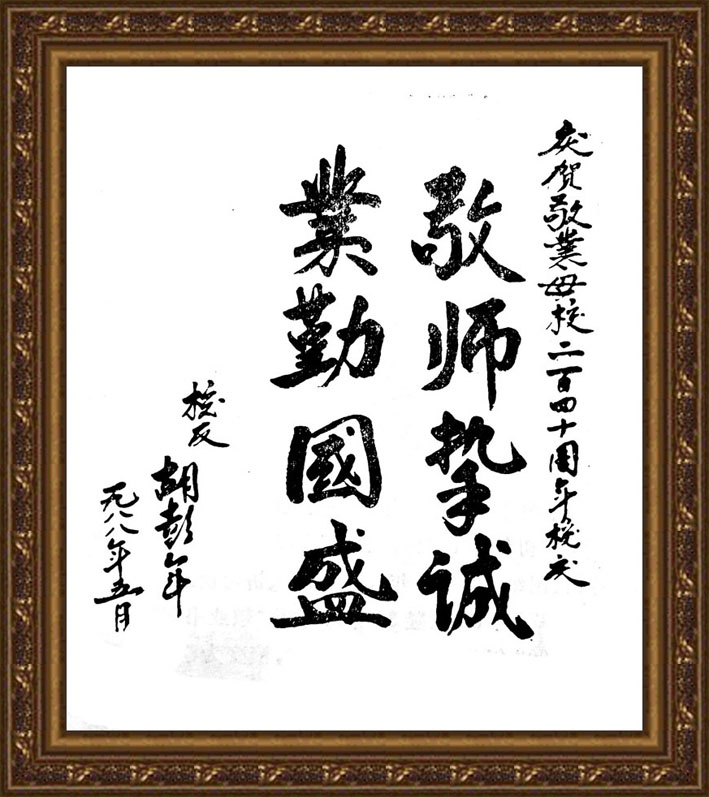 庆贺敬業母校二百四十周年校庆
敬师挚诚
業勤國盛
校友
胡彭年
一九八八年五月